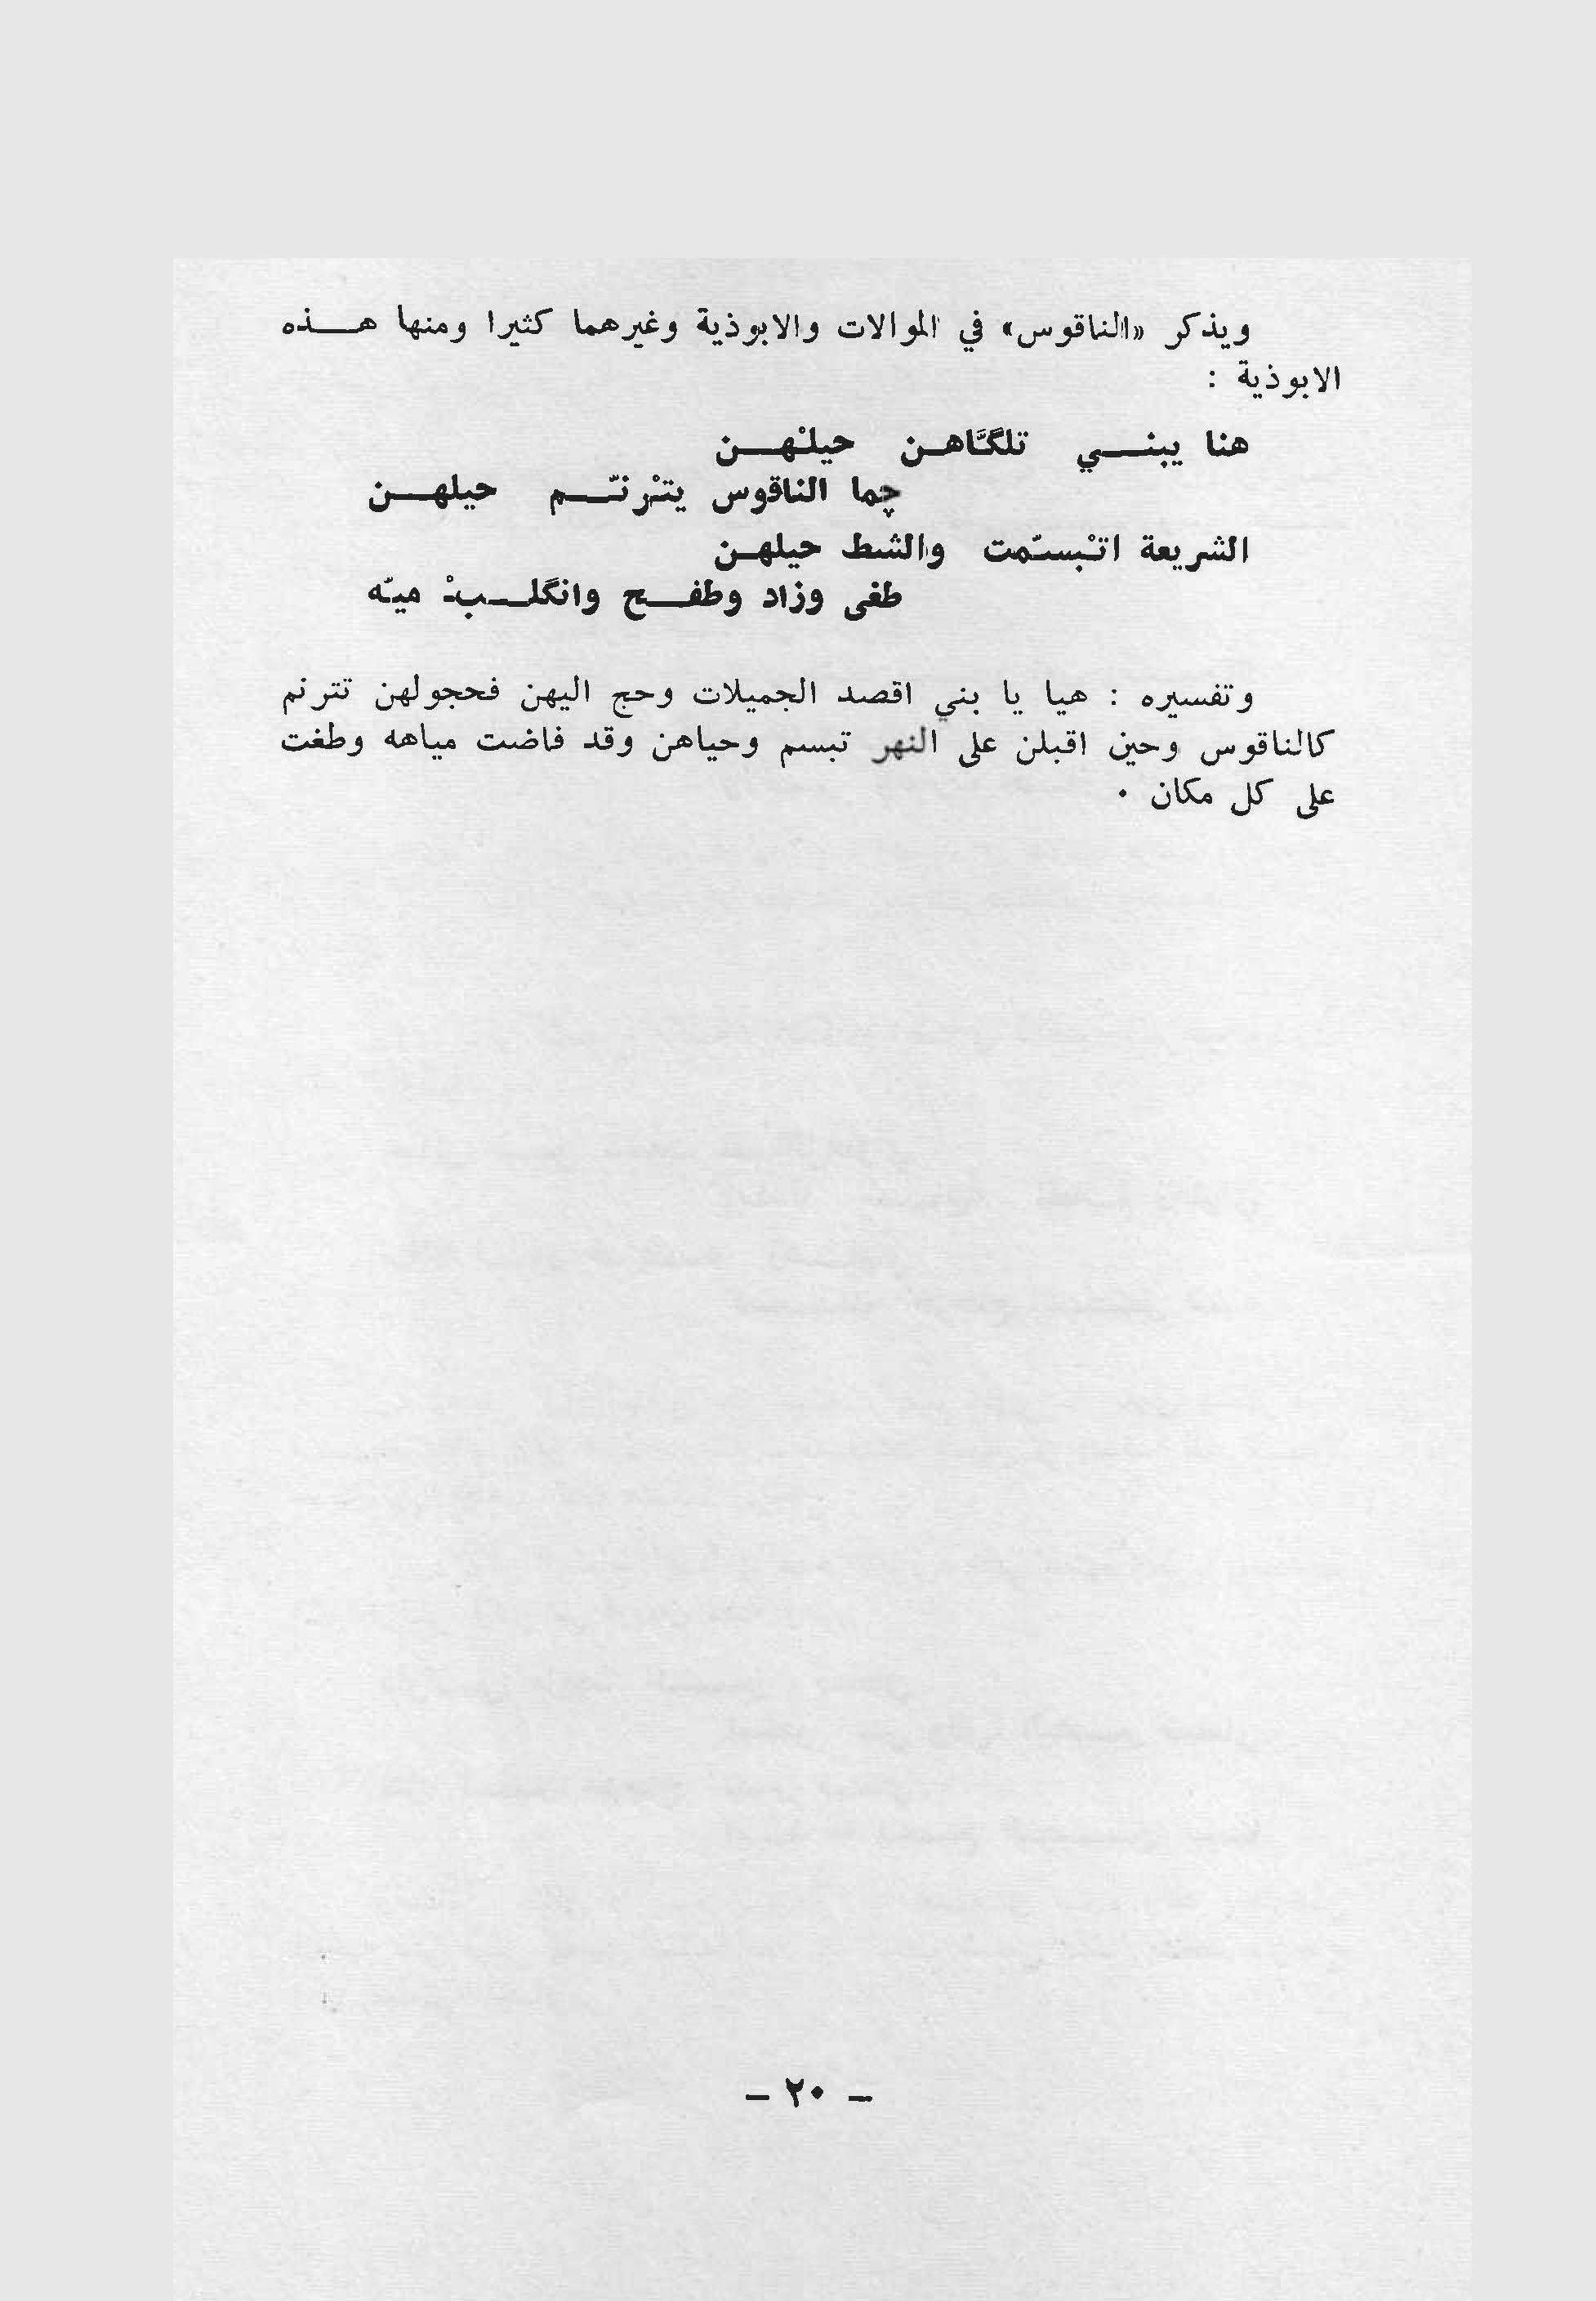 ويذكر «الناقوس» في الموالات والابوذية وغيرهما كثيرا ومنها هـــذه
الابوذية :
هنا يبنـــي تلگـَّاهـن حيلـْهـــن
چما الناقوس يتـْرنـّـــم حيلهـــن
الشريعة اتـْبسـّمت والشط حيلهـن
طغى وزاد وطفـــح وانگلـــبْ ميـّه
وتفسيره : هيا يا بني اقصد الجميلات وحج اليهن فحجولهن تترنم
كالناقوس وحين اقبلن على النهر تبسم وحياهن وقد فاضت مياهه وطغت
على كل مكان ٠
– ٢٠ –